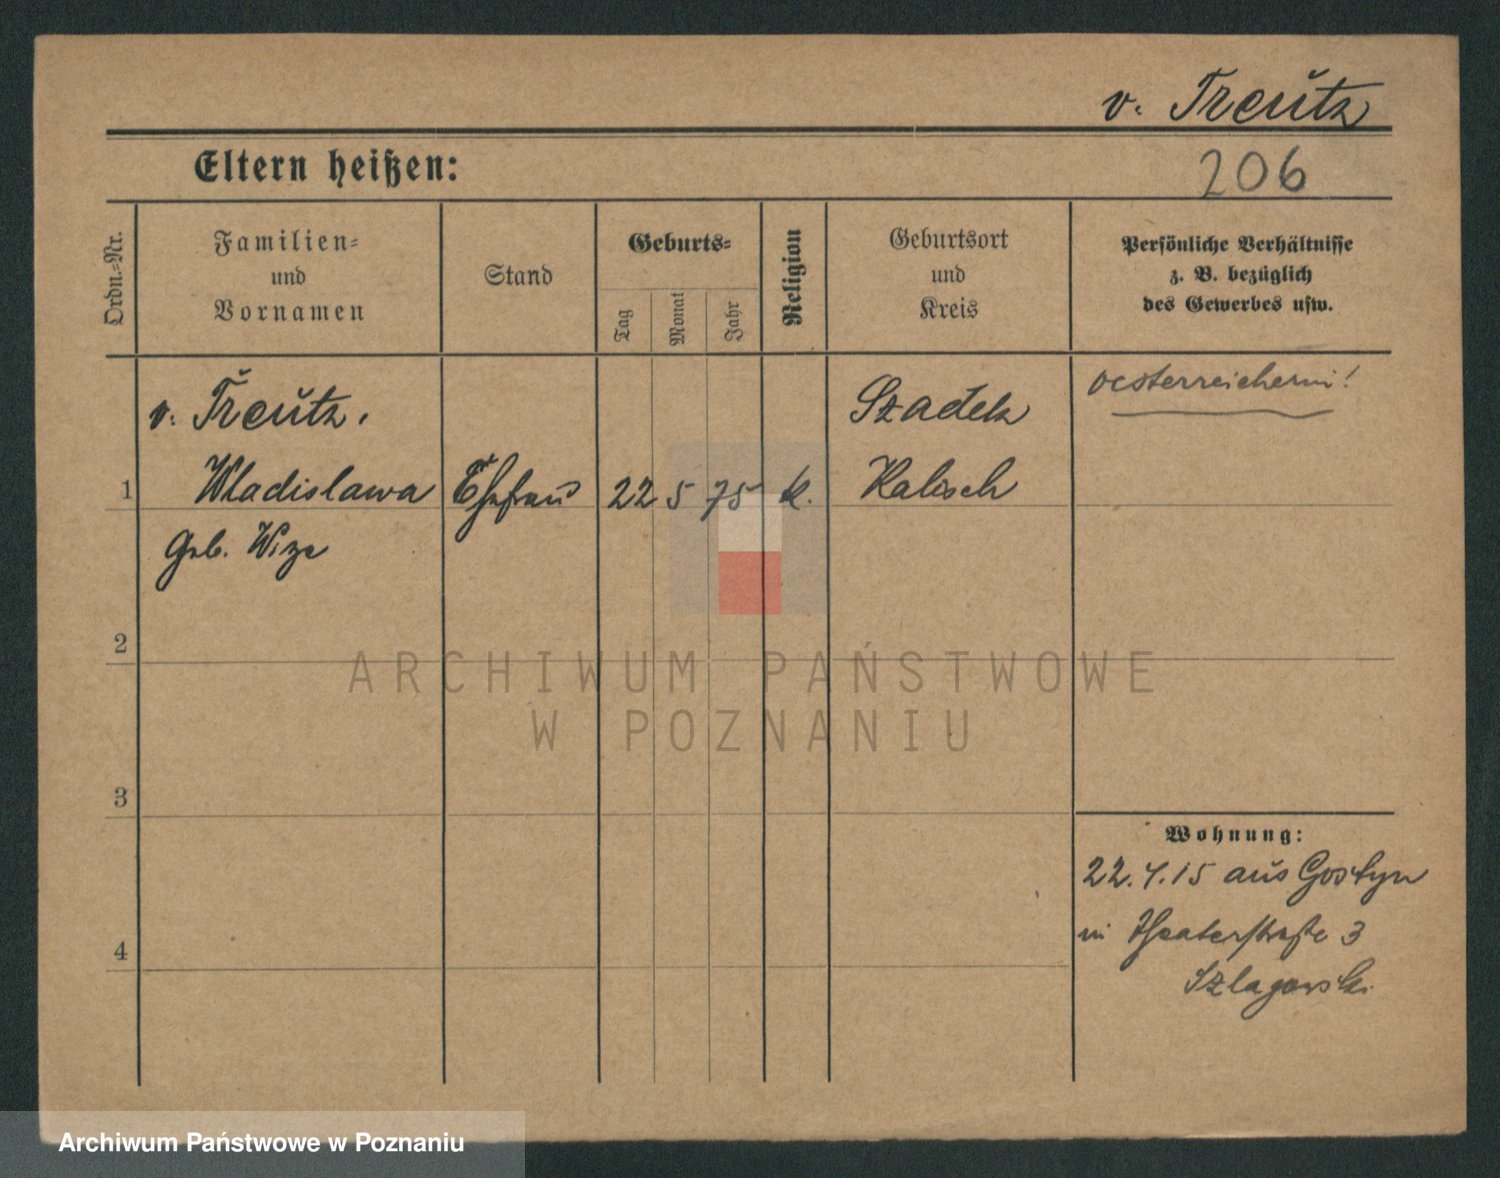 v. Treutz
Eltern heißen:
206
Ordn.-Nr.
Familien-
und
Vornamen
Stand
Geburts-
Tag
Monat
Jahr
Religion
Geburtsort
und
Kreis
Persönliche Verhältnisse
z. B. bezüglich
des Gewerbes usw.
v. Treutz,
Szadek
oesterreicherin!
1 Wladislawa Ehefrau 22 5 75 k. Kalisch
Geb. Wize
2
3
4
Wohnung:
22.4.15 aus Gostyn
in Theaterstraße 3
Szlagowski
ARCHIWUM PAŃSTWOWE
W POZNANIU
Archiwum Państwowe w Poznaniu